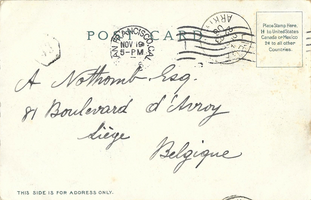 POST CARD
SAN FRANCISCO, CAL.
NOV 19
5-PM
Place Stamp Here.
1¢ to United States
Canada or Mexico
2¢ to all other
Countries.
A Nothomb Esq.
81 Boulevard d'Avroy
Liège
Belgique
THIS SIDE IS FOR ADDRESS ONLY.